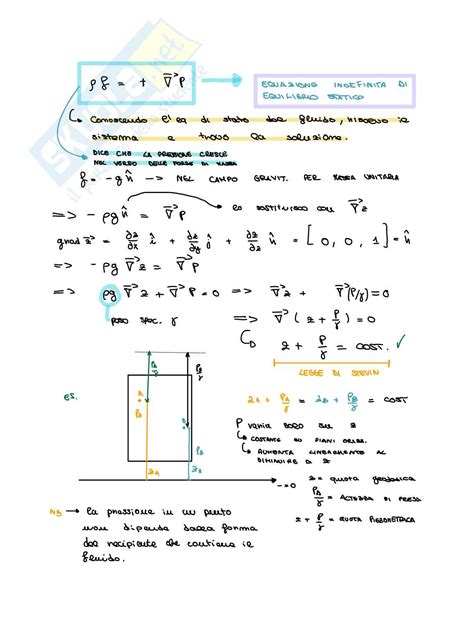 ρf = + ∇P
EQUAZIONE INDEFINITA DI
EQUILIBRIO STATICO
Conoscendo l'eq di stato del fluido, risolvo il
sistema e trovo la soluzione.
DICO CHE LA PRESSIONE CRESCE
NEL VERSO DELLE FORZE DI MASSA
f = -g n̂ → NEL CAMPO GRAVIT. PER MASSA UNITARIA
=> - ρg n̂ = ∇P lo sostituisco con ∇z
grad z = ∂z/∂x î + ∂z/∂y ĵ + ∂z/∂z n̂ = [0, 0, 1] = n̂
=> - ρg ∇z = ∇P
=> ρg ∇z + ∇P = 0 => ∇z + ∇(P/γ) = 0
PESO SPEC. γ => ∇(z + P/γ) = 0
z + P/γ = COST. ✓
LEGGE DI STEVIN
ES.
PA/γ
PB/γ
zA
zB
zA + PA/γ = zB + PB/γ = COST
P varia solo su z
COSTANTE SU PIANI ORIZZ.
AUMENTA LINEARMENTE AL
DIMINUIRE DI z
z=0
z = quota geodetica
z + P/γ = QUOTA PIEZOMETRICA
NB → la pressione in un punto
non dipende dalla forma
del recipiente che contiene il
fluido.